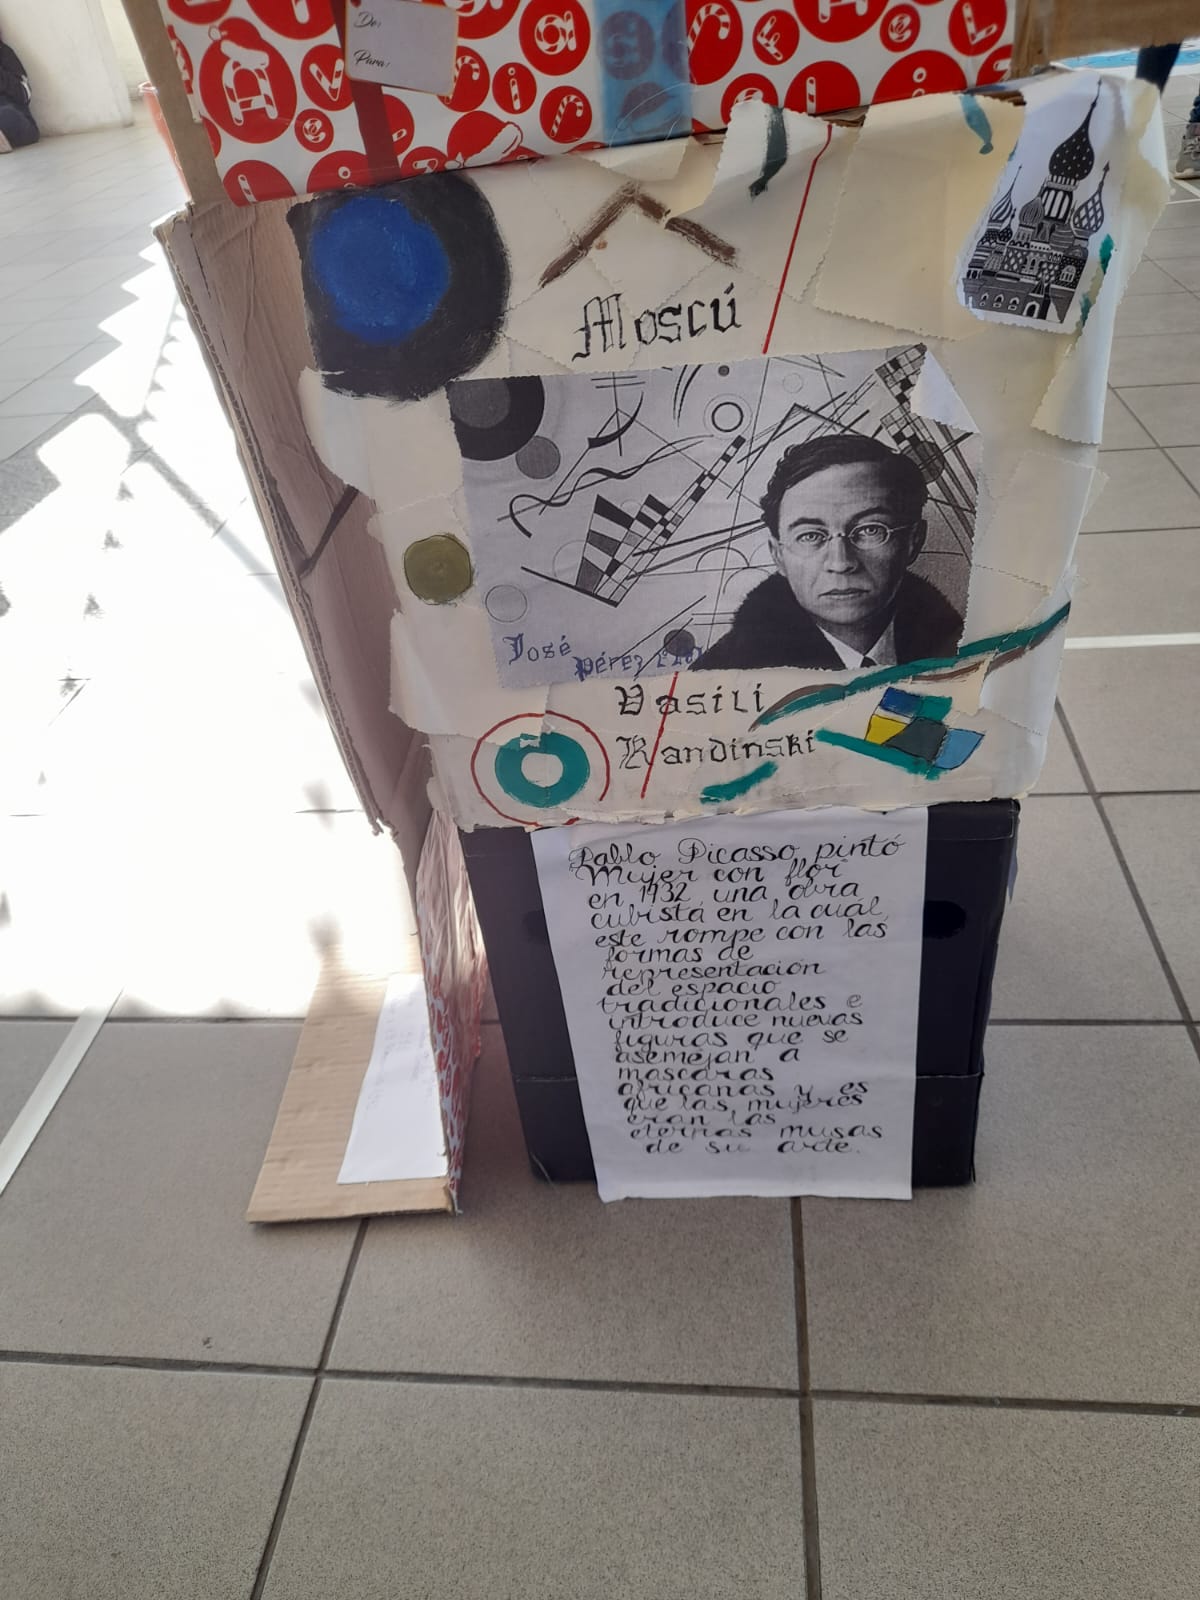 De:
Para:
Moscú
José
Pérez
Vasili
Kandinski
Pablo Picasso pintó
Mujer con flor
en 1932, una obra
cubista en la cual,
este rompe con las
formas de
representación
del espacio
tradicionales e
introduce nuevas
figuras que se
asemejan a
mascaras
africanas y es
que las mujeres
eran las
eternas musas
de su arte.